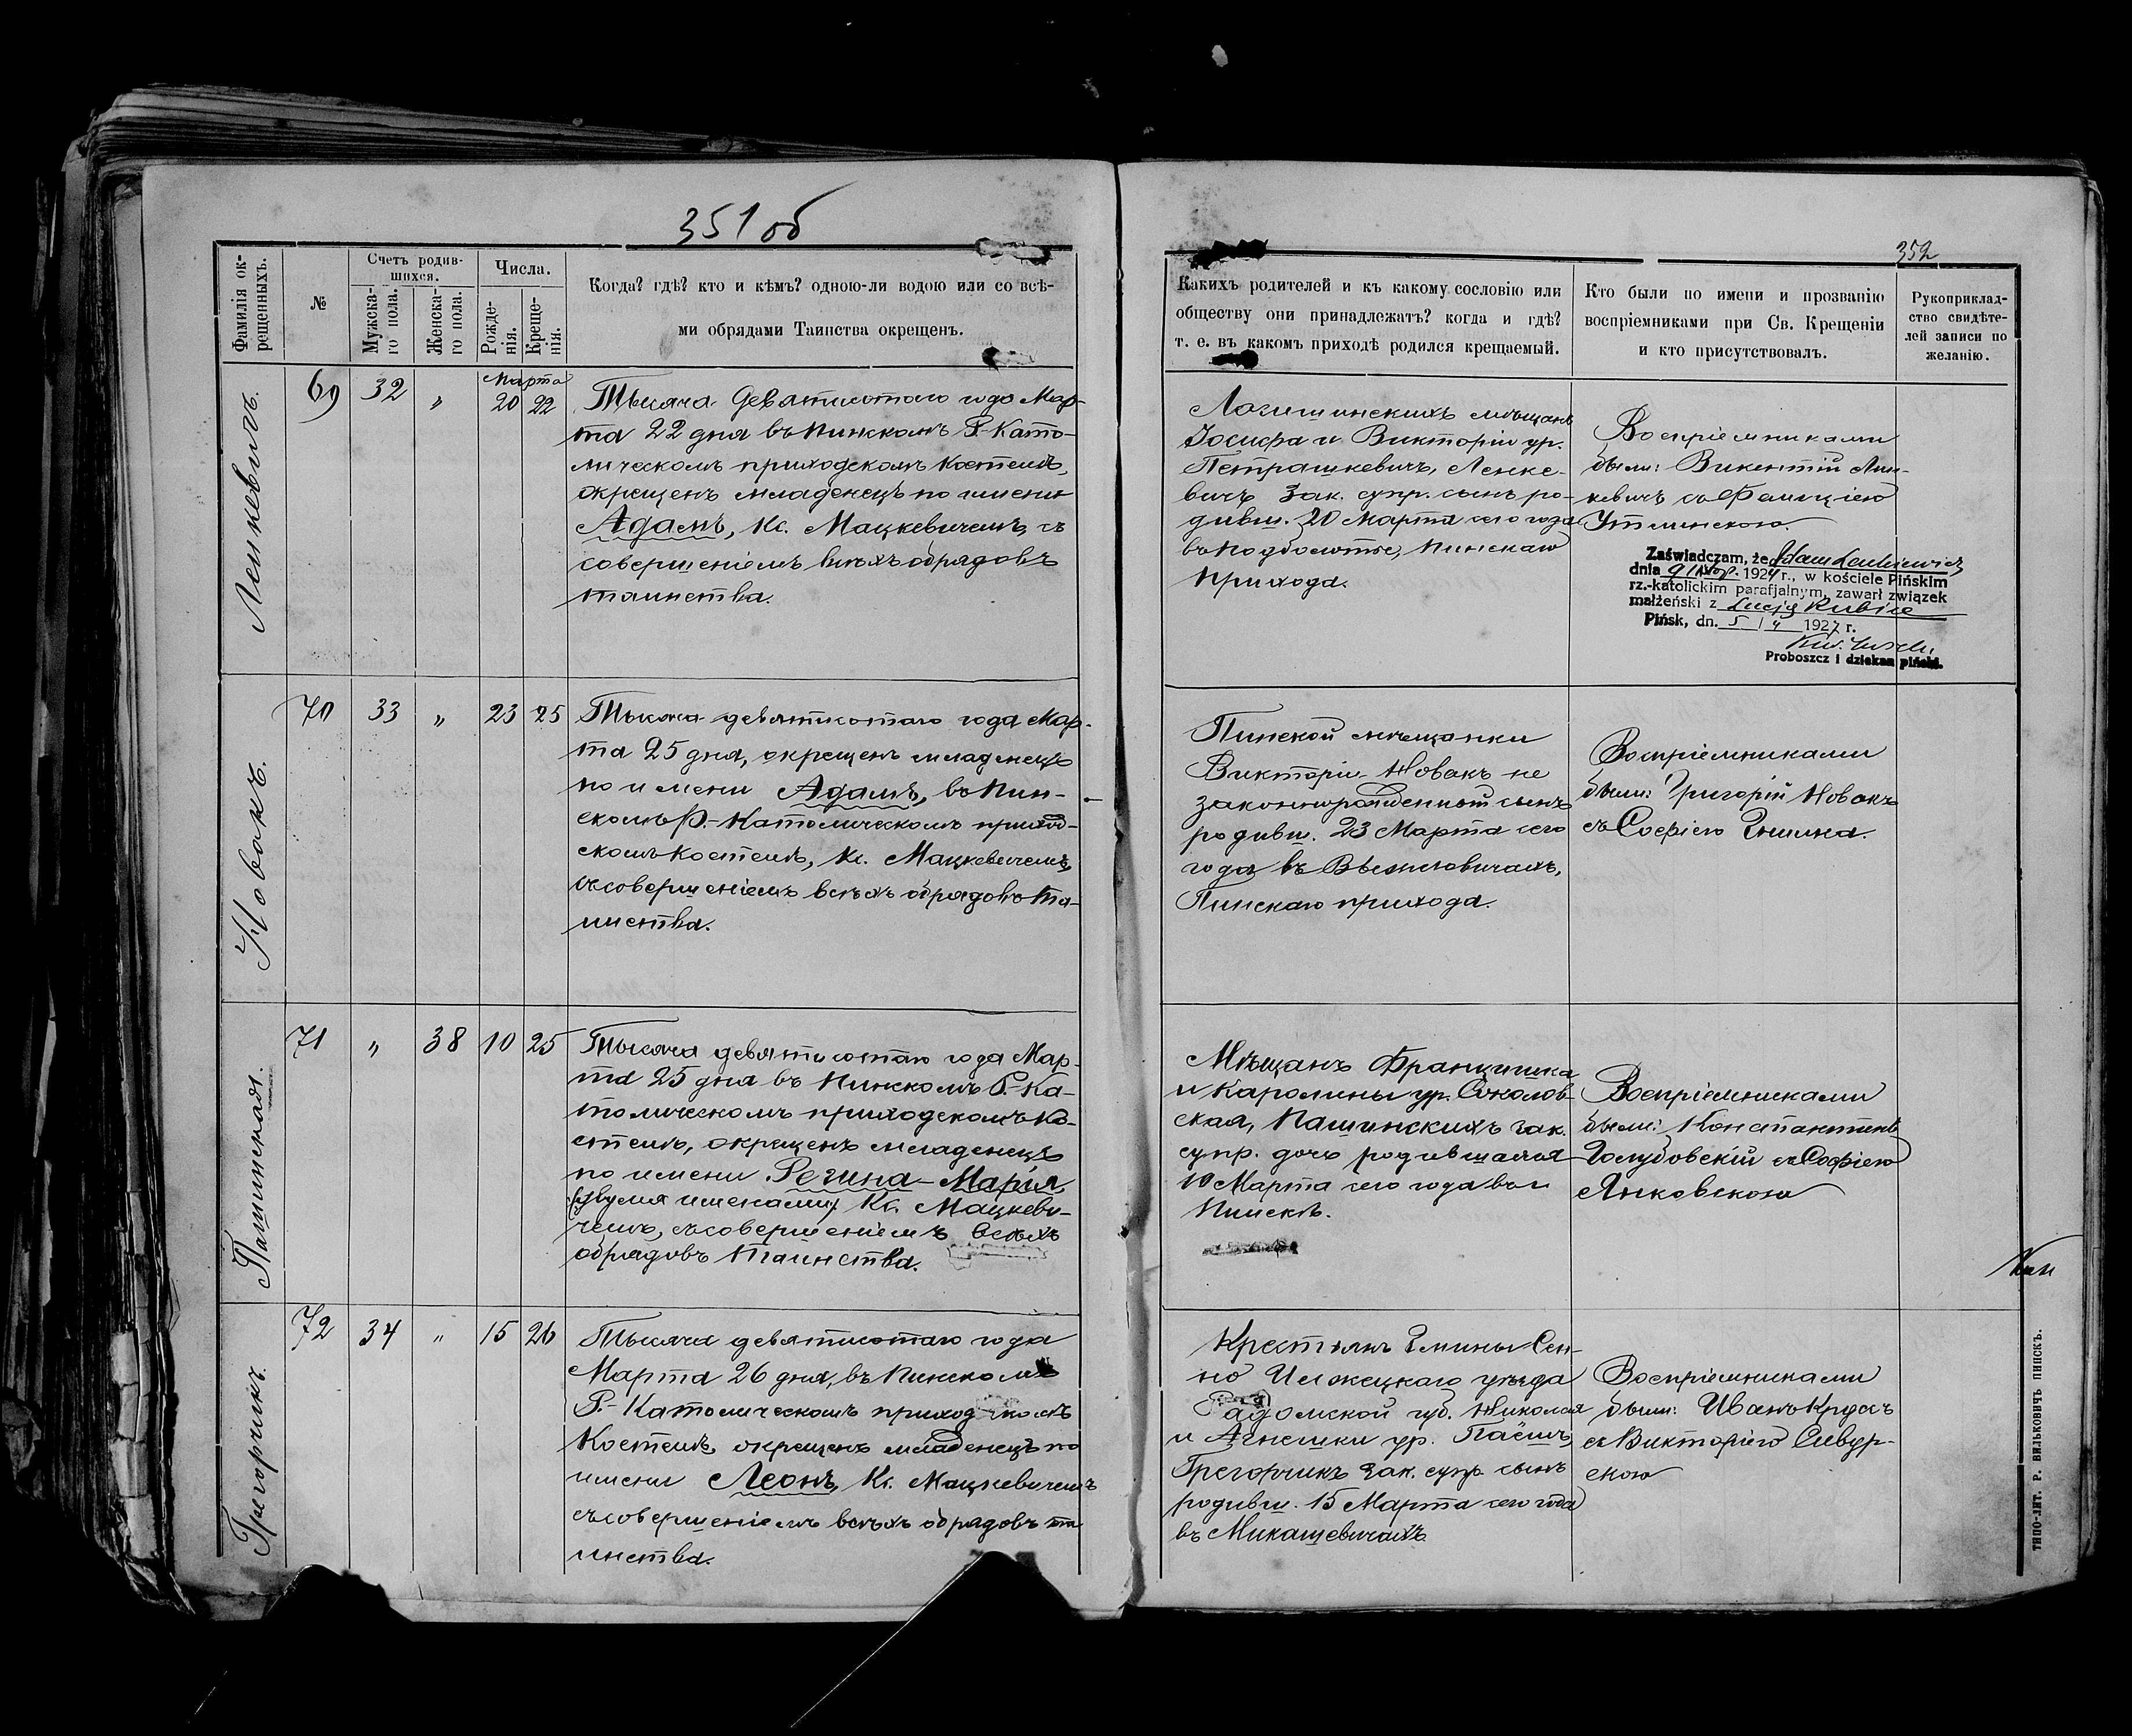 351 об
352
Фамилія ок-
рещенныхъ.
№
Счетъ родив-
шихся.
Мужска-
го пола.
Женска-
го пола.
Числа.
Рожде-
нія.
Креще-
нія.
Когда? гдѣ? кто и кѣмъ? одною-ли водою или со всѣ-
ми обрядами Таинства окрещенъ.
Какихъ родителей и къ какому сословію или
обществу они принадлежатъ? когда и гдѣ?
т. е. въ какомъ приходѣ родился крещаемый.
Кто были по имени и прозванію
воспріемниками при Св. Крещеніи
и кто присутствовалъ.
Рукоприклад-
ство свидѣте-
лей записи по
желанію.
Ленкевичъ.
69 32 " Марта 20 22
Тысяча девятисотаго года Мар-
та 22 дня въ Пинскомъ Р.-Като-
лическомъ приходскомъ Костелѣ,
окрещенъ младенецъ по имени
Адамъ, Кс. Мацкевичемъ, съ
совершеніемъ всѣхъ обрядовъ
таинства.
Логишинскихъ мѣщанъ
Іосифа и Викторіи ур.
Петрашкевичъ, Ленке-
вичъ зак. супр. сынъ ро-
дивш. 20 Марта сего года
въ Подболотье, Пинскаго
прихода.
Воспріемниками
были: Викентій Лин-
кевичъ съ Фелиціею
Zaświadczam, że Adam Lenkiewicz
dnia 9 1924 r., w kościele Pińskim
rz.-katolickim parafjalnym, zawarł związek
małżeński z Lucją
Pińsk, dn. 5 / 4 1927 r.
Proboszcz i dziekan piński.
Новакъ.
70 33 " 23 25
Тысяча девятисотаго года Мар-
та 25 дня, окрещенъ младенецъ
по имени Адамъ, въ Пин-
скомъ Р.-Католическомъ приход-
скомъ Костелѣ, Кс. Мацкевичемъ,
съ совершеніемъ всѣхъ обрядовъ та-
инства.
Пинской мѣщанки
Викторіи Новакъ не
законнорожденный сынъ
родивш. 23 Марта сего
года въ Выжловичахъ,
Пинскаго прихода.
Воспріемниками
были: Григорій Новакъ
съ Софіею
Пашинская.
71 " 38 10 25
Тысяча девятисотаго года Мар-
та 25 дня въ Пинскомъ Р.-Ка-
толическомъ приходскомъ Ко-
стелѣ, окрещенъ младенецъ
по имени Регина-Марія,
(двумя именами) Кс. Мацкеви-
чемъ, съ совершеніемъ всѣхъ
обрядовъ таинства.
Мѣщанъ Францишка
и Каролины ур. Соколов-
ская, Пашинскихъ зак.
супр. дочь родившаяся
10 Марта сего года въ
Пинскѣ.
Воспріемниками
были: Константинъ
Голубовскій съ Софіею
Янковскою
Грегорчикъ.
72 34 " 15 26
Тысяча девятисотаго года
Марта 26 дня, въ Пинскомъ
Р.-Католическомъ приходскомъ
Костелѣ, окрещенъ младенецъ по
имени Леонъ, Кс. Мацкевичемъ
съ совершеніемъ всѣхъ обрядовъ та
инства.
Крестьянъ Гмины Сен-
но Илжецкаго уѣзда
Радомской губ. Николая
и Агнешки ур.
Грегорчикъ зак. супр. сынъ
родивш. 15 Марта сего года
въ Микашевичахъ.
Воспріемниками
были: Иванъ
съ Викторіею Сивур-
скою
ТИПО-ЛИТ. Р. ВИЛЬКОВИЧЪ ПИНСКЪ.